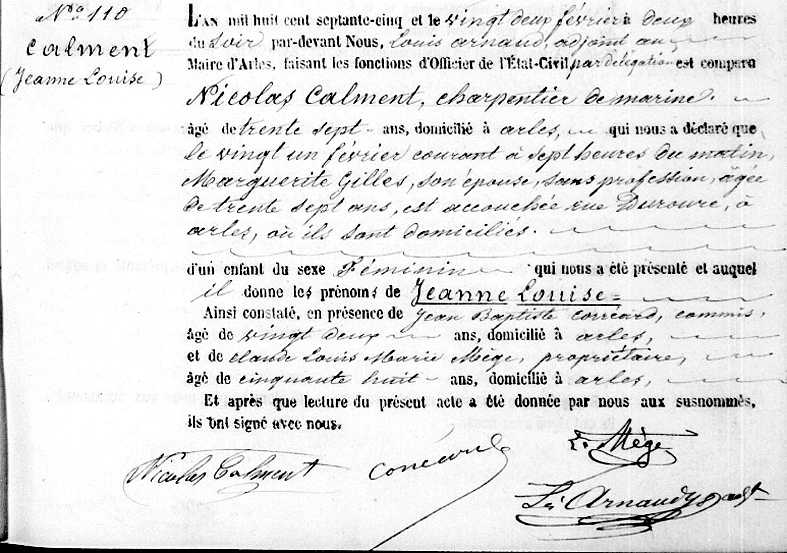 No 110
Calment
(Jeanne Louise)
L'AN mil huit cent septante-cinq et le vingt deux février à deux heures
du soir par-devant Nous, Louis arnaud, adjoint au
Maire d'Arles, faisant les fonctions d'Officier de l'État-Civil, par délégation est comparu
Nicolas Calment, charpentier de marine.
âgé de trente sept ans, domicilié à arles, qui nous a déclaré que
le vingt un février courant à sept heures du matin,
Marguerite Gilles, son épouse, sans profession, âgée
de trente sept ans, est accouchée rue Duroure, à
arles, où ils sont domiciliés.
d'un enfant du sexe Féminin qui nous a été présenté et auquel
il donne les prénoms de Jeanne Louise
Ainsi constaté, en présence de Jean Baptiste Corréard, commis,
âgé de vingt deux ans, domicilié à arles,
et de claude Louis Marie Mège, propriétaire,
âgé de cinquante huit ans, domicilié à arles,
Et après que lecture du présent acte a été donnée par nous aux susnommés,
ils ont signé avec nous.
L. Mège
Nicolas Calment Corréard
Ls Arnaud adjt